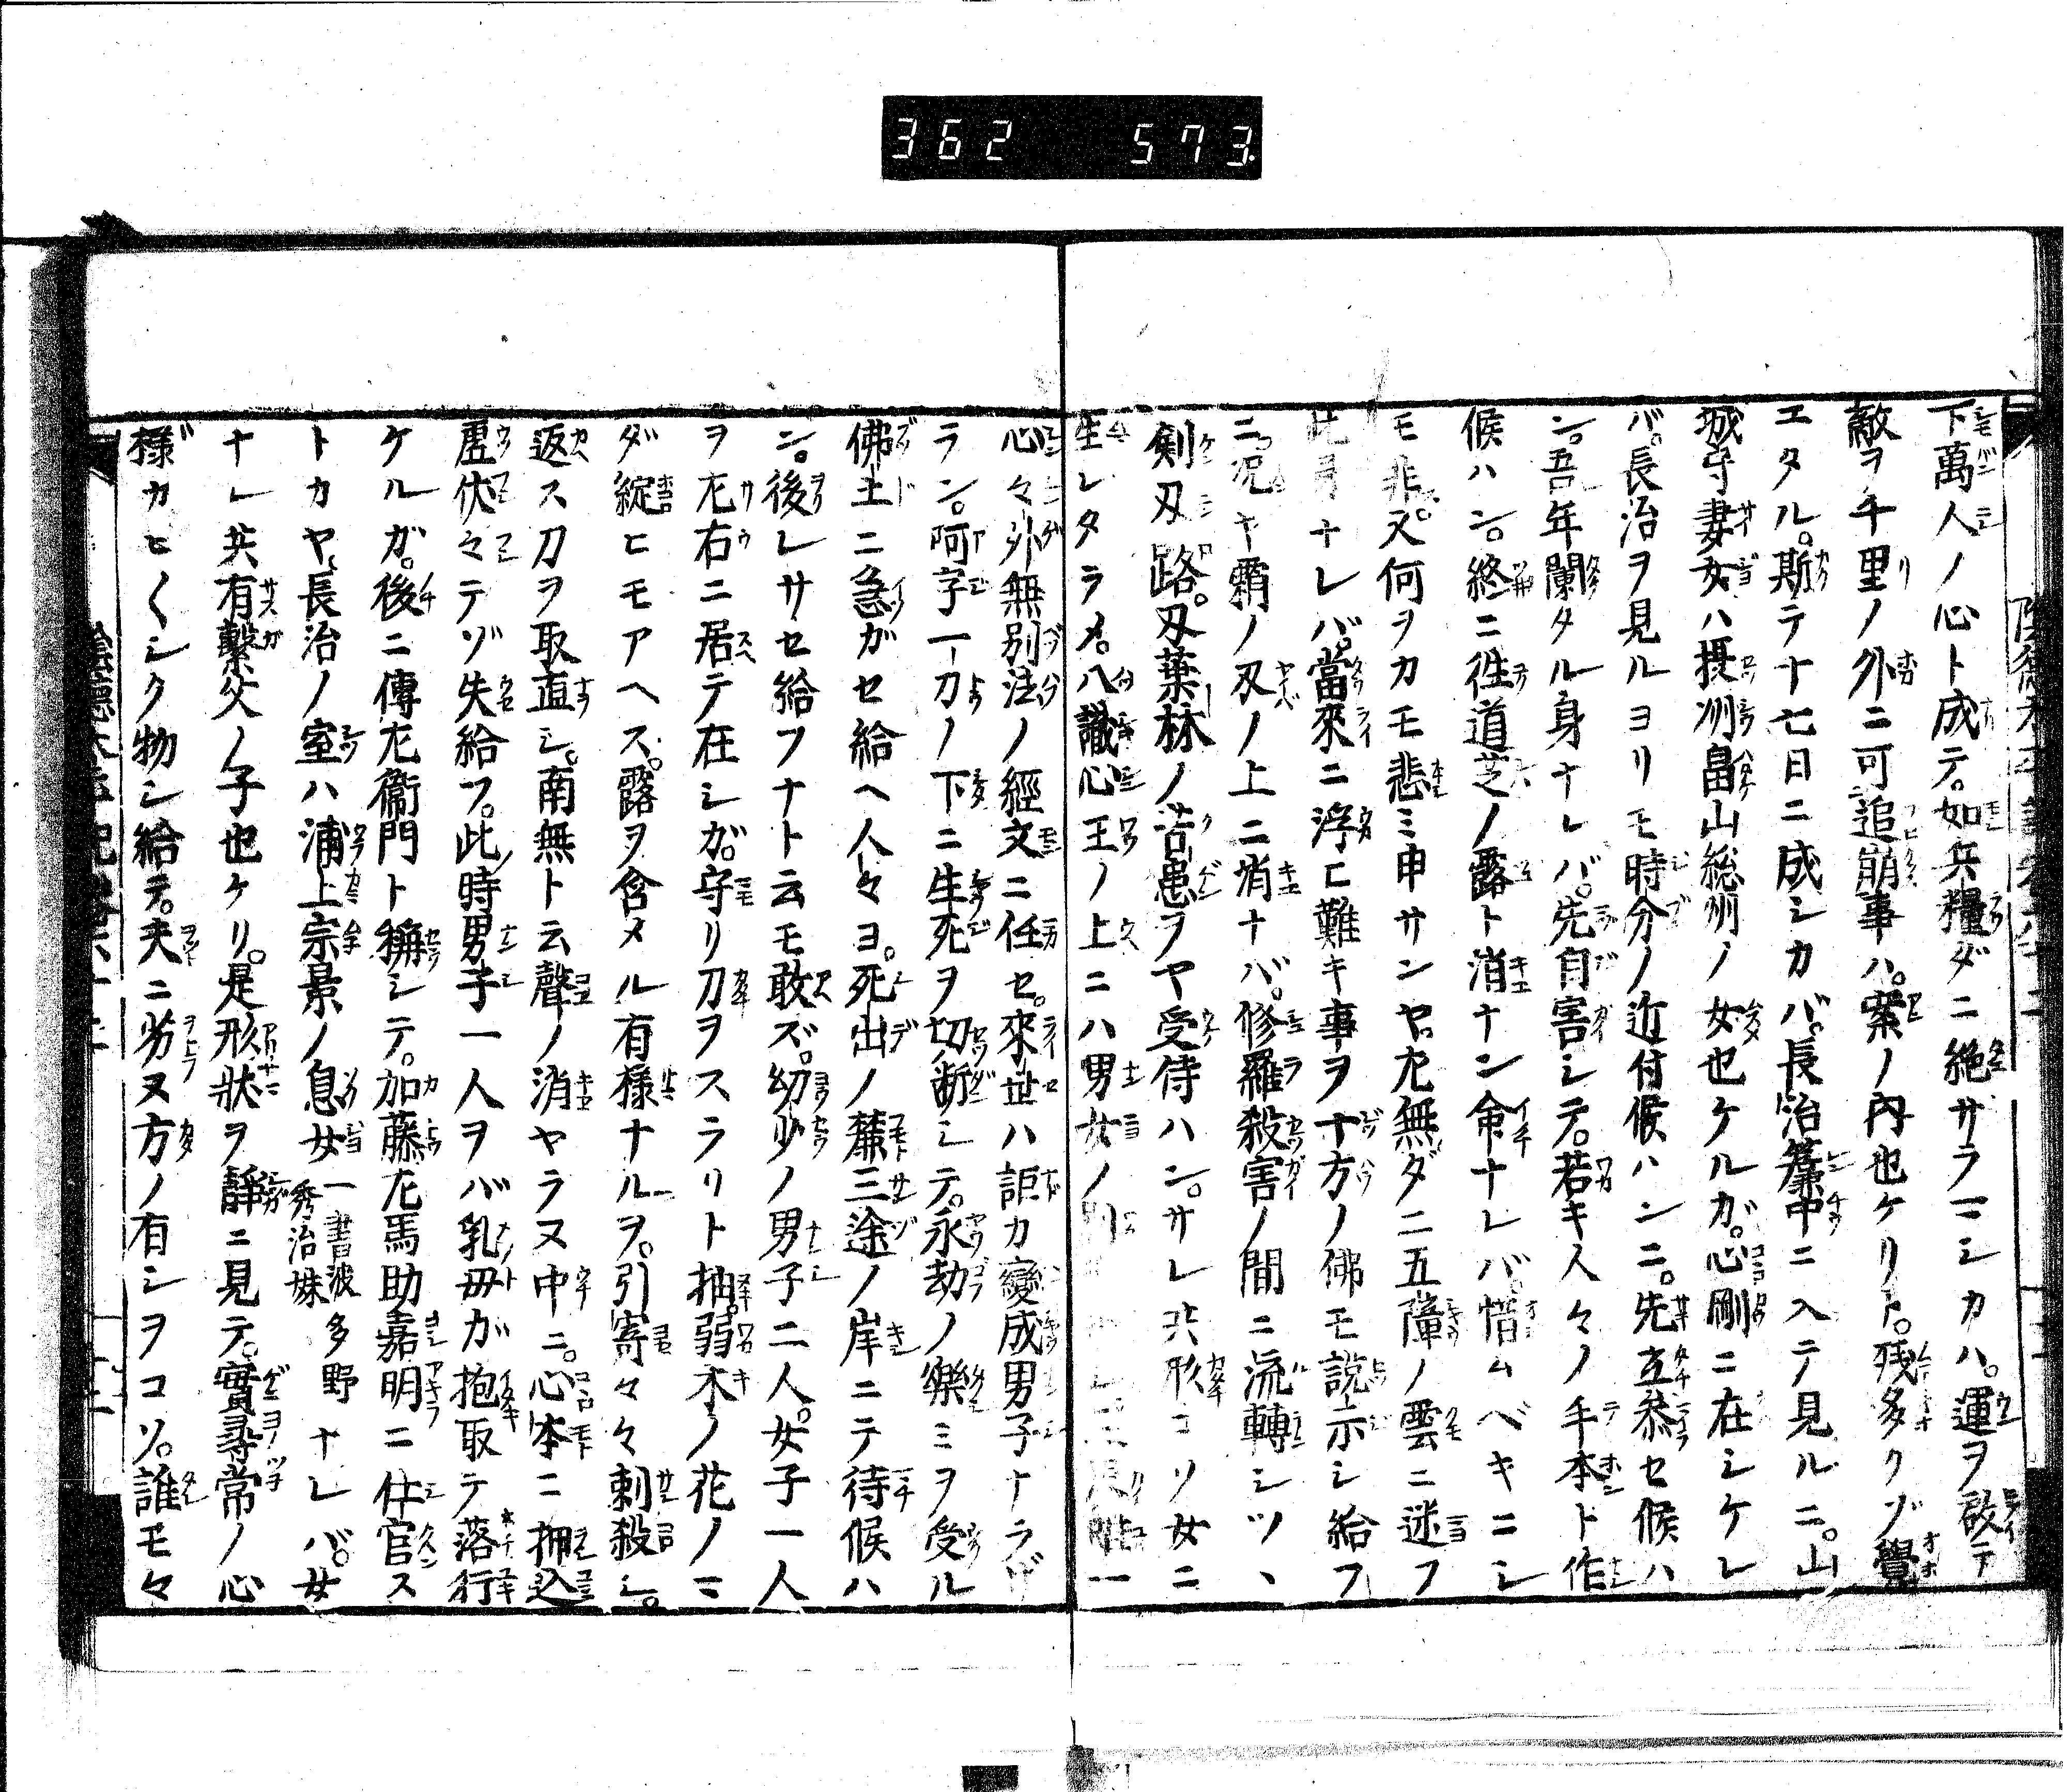 362 573
下萬人ノ心ト成テ。如兵糧ダニ絶サラマシカハ。運ヲ啓テ
敵ヲ千里ノ外ニ可追崩事ハ。案ノ内也ケリト。残多クゾ覺
エタル。斯テ十七日ニ成シカバ。長治簾中ニ入テ見ルニ。山
城守妻女ハ摂州畠山総州ノ女也ケルガ。心剛ニ在シケレ
バ。長治ヲ見ルヨリモ時分ノ近付候ハンニ。先立参セ候ハ
ン。吾年闌タル身ナレバ。先自害シテ。若キ人々ノ手本ト作
候ハン。終ニ徃道芝ノ露ト消ナン命ナレバ。惜ムベキニシ
モ非。又何ヲカモ悲ミ申サンヤ。左無ダニ五障ノ雲ニ迷フ
此身ナレバ。當來ニ浮ヒ難キ事ヲ十方ノ佛モ説示シ給フ
ニ。况ヤ霜ノ刄ノ上ニ消ナバ。修羅殺害ノ間ニ流轉シツヽ
剣刄路。刄葉林ノ苦患ヲヤ受侍ハン。サレ共形コソ女ニ
生レタラメ。八識心王ノ上ニハ男女ノ別
心々外無別法ノ經文ニ任セ。來世ハ詎カ變成男子ナラザ
ラン。阿字一刀ノ下ニ生死ヲ切断シテ。永劫ノ樂ミヲ受ル
佛土ニ急ガセ給ヘ人々ヨ。死出ノ麓三途ノ岸ニテ待候ハ
ン。後レサセ給フナト云モ敢ズ。幼少ノ男子二人。女子一人
ヲ左右ニ居テ在シガ。守リ刀ヲスラリト抽。弱木ノ花ノマ
ダ綻ヒモアヘス。露ヲ含メル有様ナルヲ。引寄々々刺殺シ。
返ス刀ヲ取直シ。南無ト云聲ノ消ヤラヌ中ニ。心本ニ押込
虚伏々テゾ失給フ。此時男子一人ヲバ乳母ガ抱取テ落行
ケルガ。後ニ傳左衞門ト稱シテ。加藤左馬助嘉明ニ仕官ス
トカヤ。長治ノ室ハ浦上宗景ノ息女一書波多野秀治妹ナレバ。女
ナレ共有繋父ノ子也ケリ。是形状ヲ靜ニ見テ。實尋常ノ心
様カヒ〲シク物シ給テ。夫ニ劣ヌ方ノ有シヲコソ。誰モ々